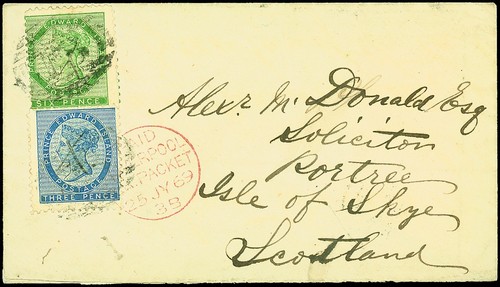 PRINCE EDWARD
SIX PENCE
PRINCE EDWARD ISLAND
POSTAGE
THREE PENCE
PACKET
25 JY 69
3B
Alexr McDonald Esq
Soliciton
Portree
Isle of Skye
Scotland